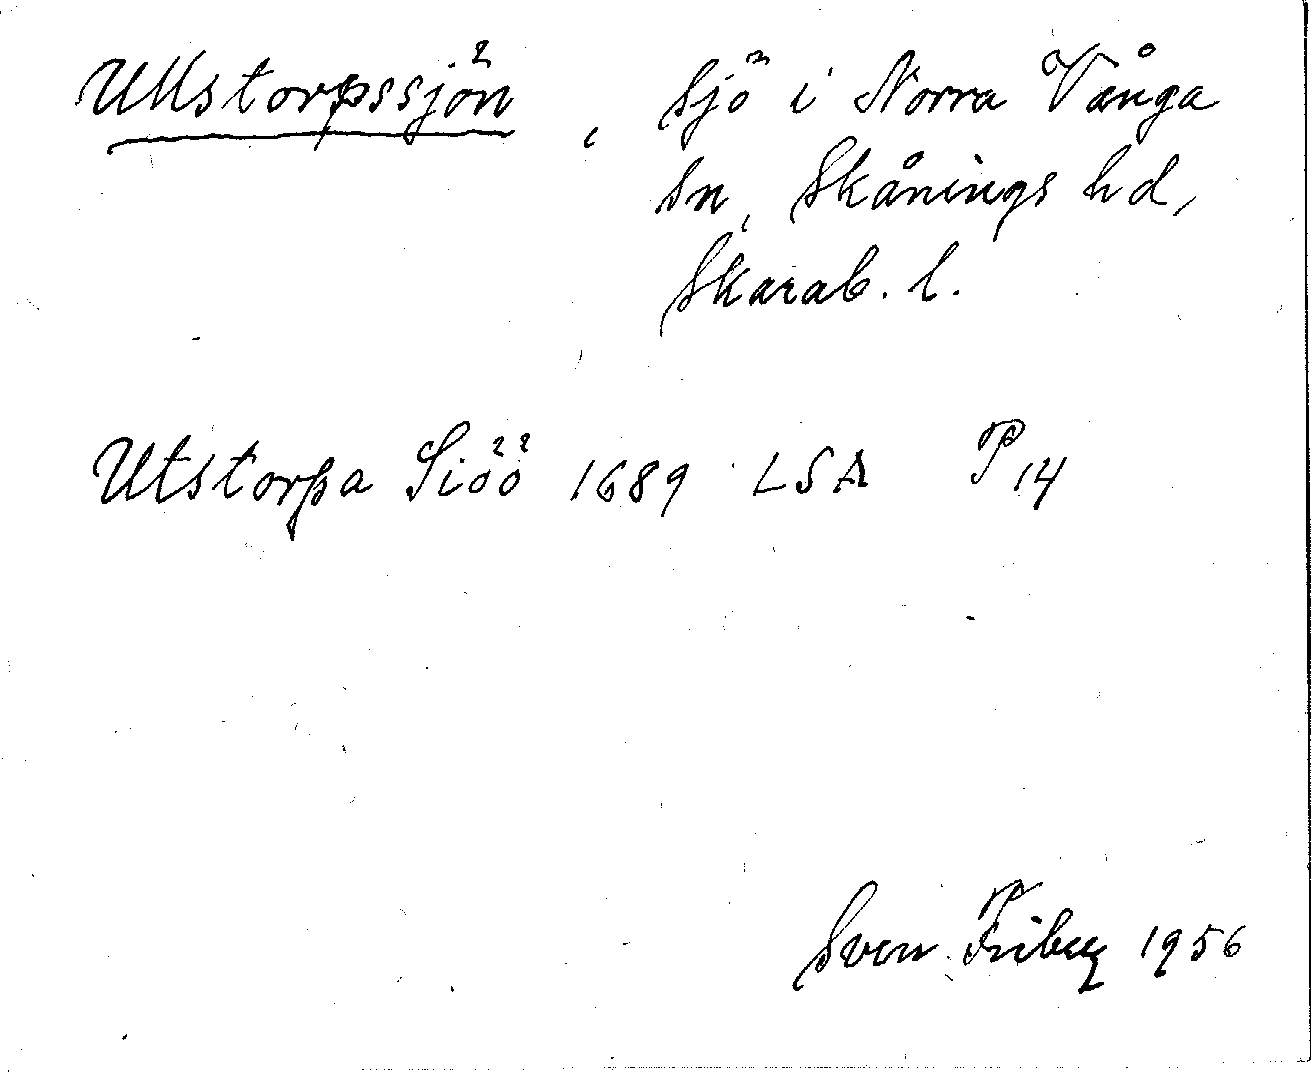 Ullstorpssjön, sjö i Norra Vånga
sn, Skånings hd,
Skarab. l.
Utstorpa Siöö 1689 LSA P14
Sven Friberg 1956